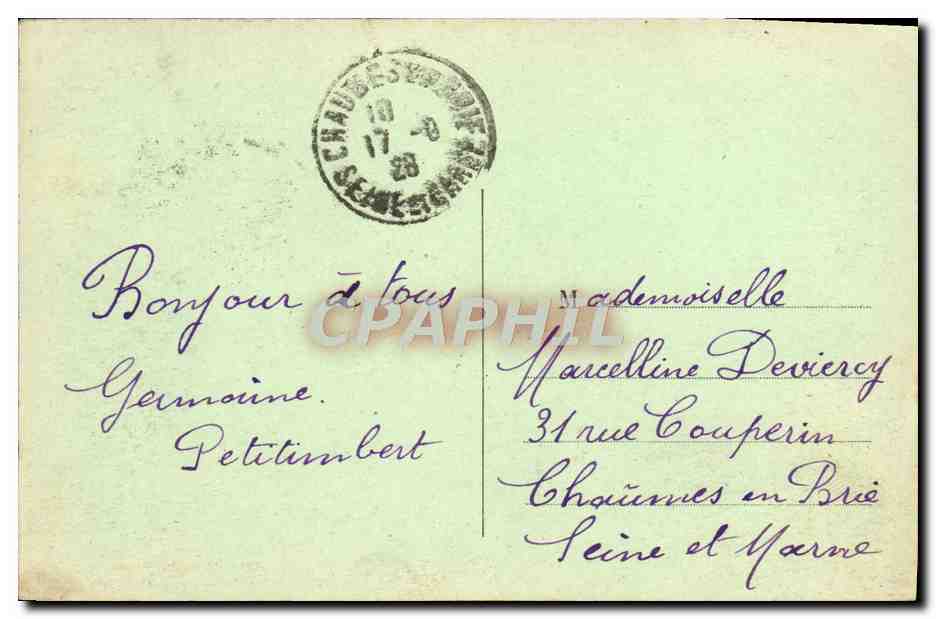 CHAUMES EN BRIE
18
17 -8
28
SEINE-ET-MARNE
Bonjour à tous
Germaine.
Petitimbert
CPAPHIL
Mademoiselle
Marcelline Deviercy
31 rue Couperin
Chaumes en Brie
Seine et Marne